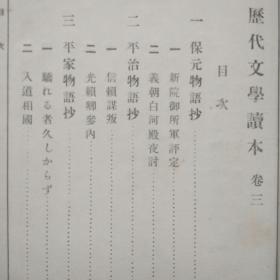 歷代文學讀本 卷三
目次
一 保元物語抄
一 新院御所軍評定
二 義朝白河殿夜討
二 平治物語抄
一 信賴謀叛
二 光賴卿參內
三 平家物語抄
一 驕れる者久しからず
二 入道相國
目次